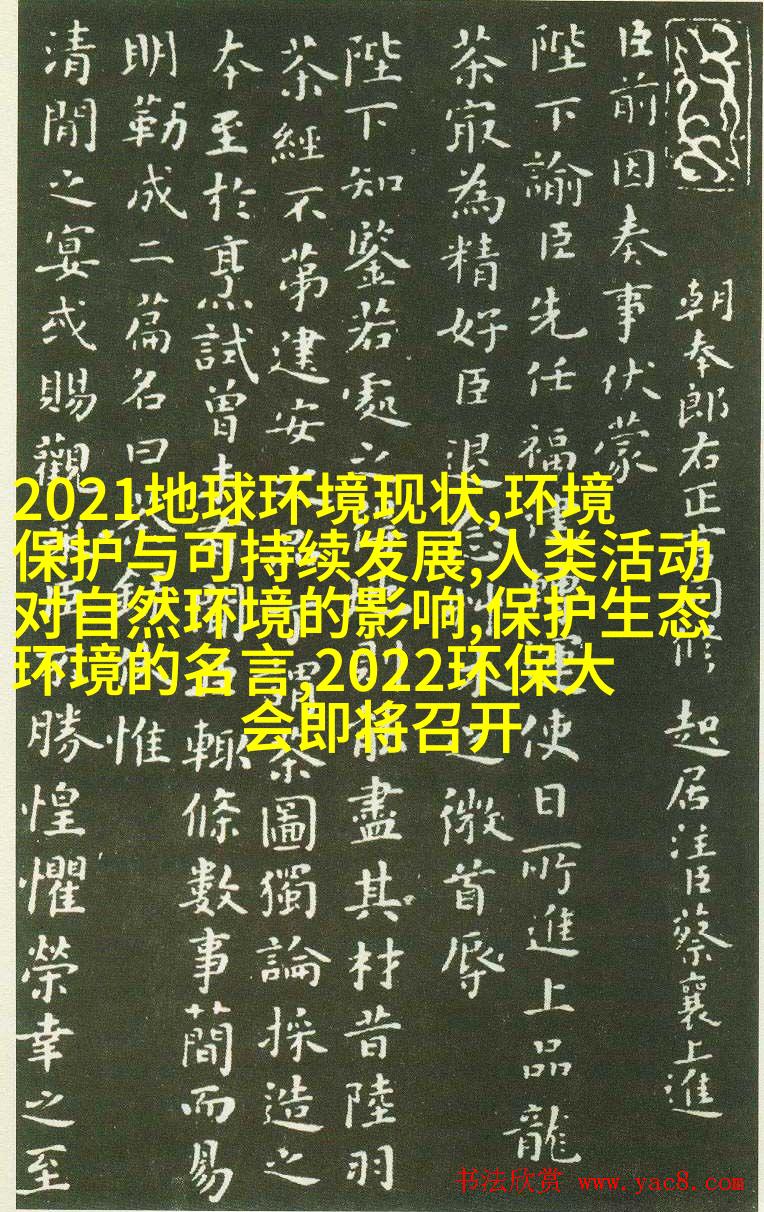 朝奉郎右正修起居注臣蔡襄上進
臣前因奏事伏蒙
陛下諭臣先任福使日所進上品龍
茶㝡為精好臣退念之微首辱
陛下知鑒若處之能盡其材昔陸羽
茶經不第建安之謂茶圖獨論採造之
本至於烹試曾未有聞輒條數事簡而易
明勒成二篇名曰茶錄惟
清閒之宴或賜觀臣勝惶懼榮幸之至
2021地球环境现状,环境
保护与可持续发展,人类活动
对自然环境的影响,保护生态
环境的名言,2022环保大
会即将召开
书法欣赏 www.yac8.com